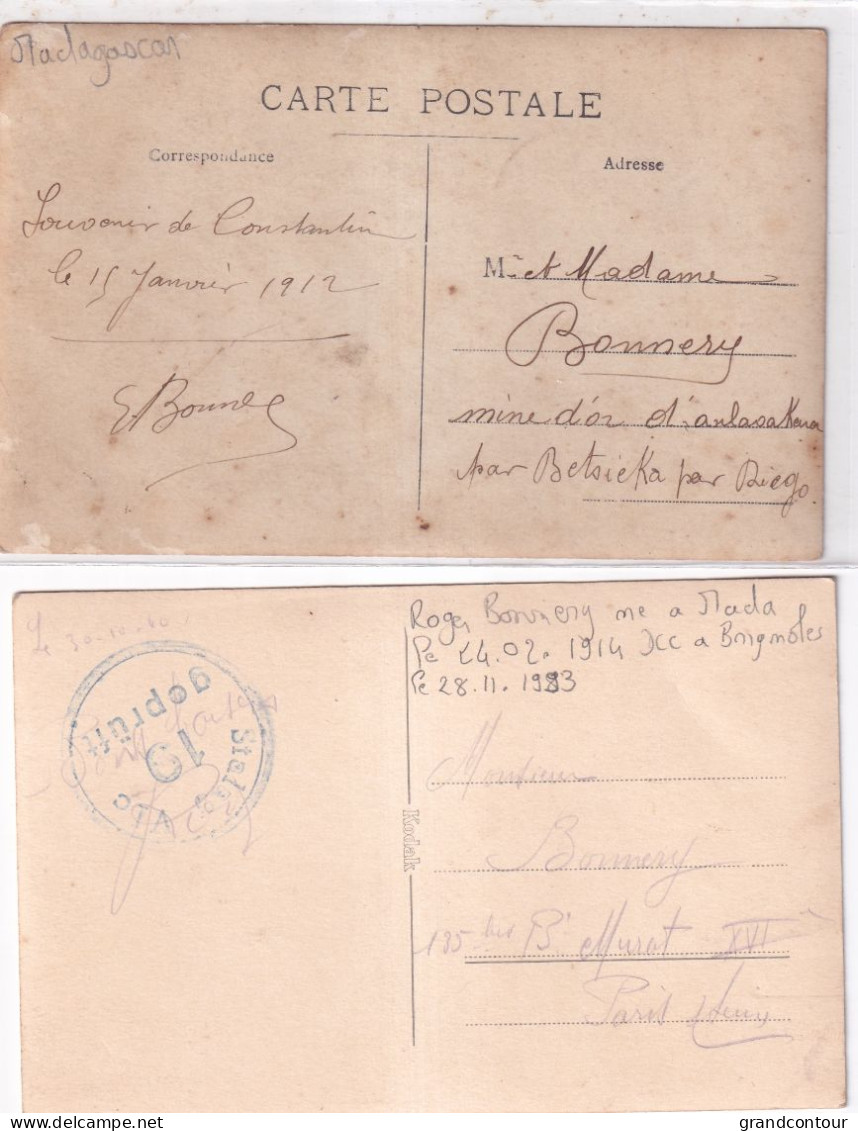 Madagascar
CARTE POSTALE
Correspondance
Adresse
Souvenir de Constantin
le 15 Janvier 1912
E Bonne
Mr et Madame
Bonnery
mine d'or d'
par Betsieka par Diego.
Le 30-10-40
Stalag V b c
19
geprüft
Roger Bonnery ne a Mada
le 24.02.1914 Dcc a Brignoles
le 28.11.1983
Kodak
Monsieur
Bonnery
135 bis Bd Murat XVI
Paris
www.delcampe.net
grandcontour